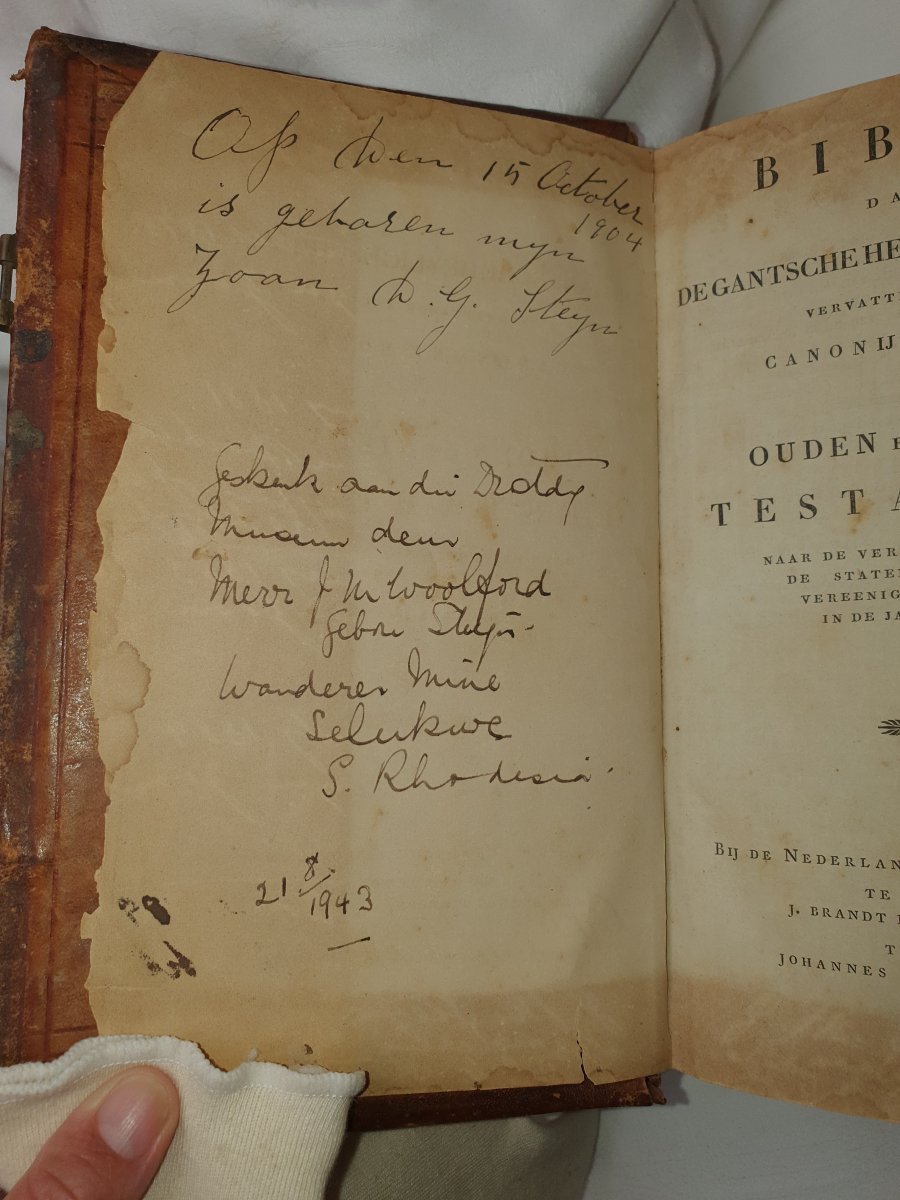 Op den 15 October
1904
is geboren myn
Zoon D. G. Steyn
Geskenk aan die Drostdy
Museum deur
Mevr J M Woolford
Gebore Steyn.
Wanderer Mine
Selukwe
S. Rhodesia.
21 8/1943
BIB
DA
DE GANTSCHE HE
VERVATT
CANONIJ
OUDEN E
TESTA
NAAR DE VER
DE STATE
VEREENIG
IN DE JA
BIJ DE NEDERLAN
TE
J. BRANDT
T
JOHANNES